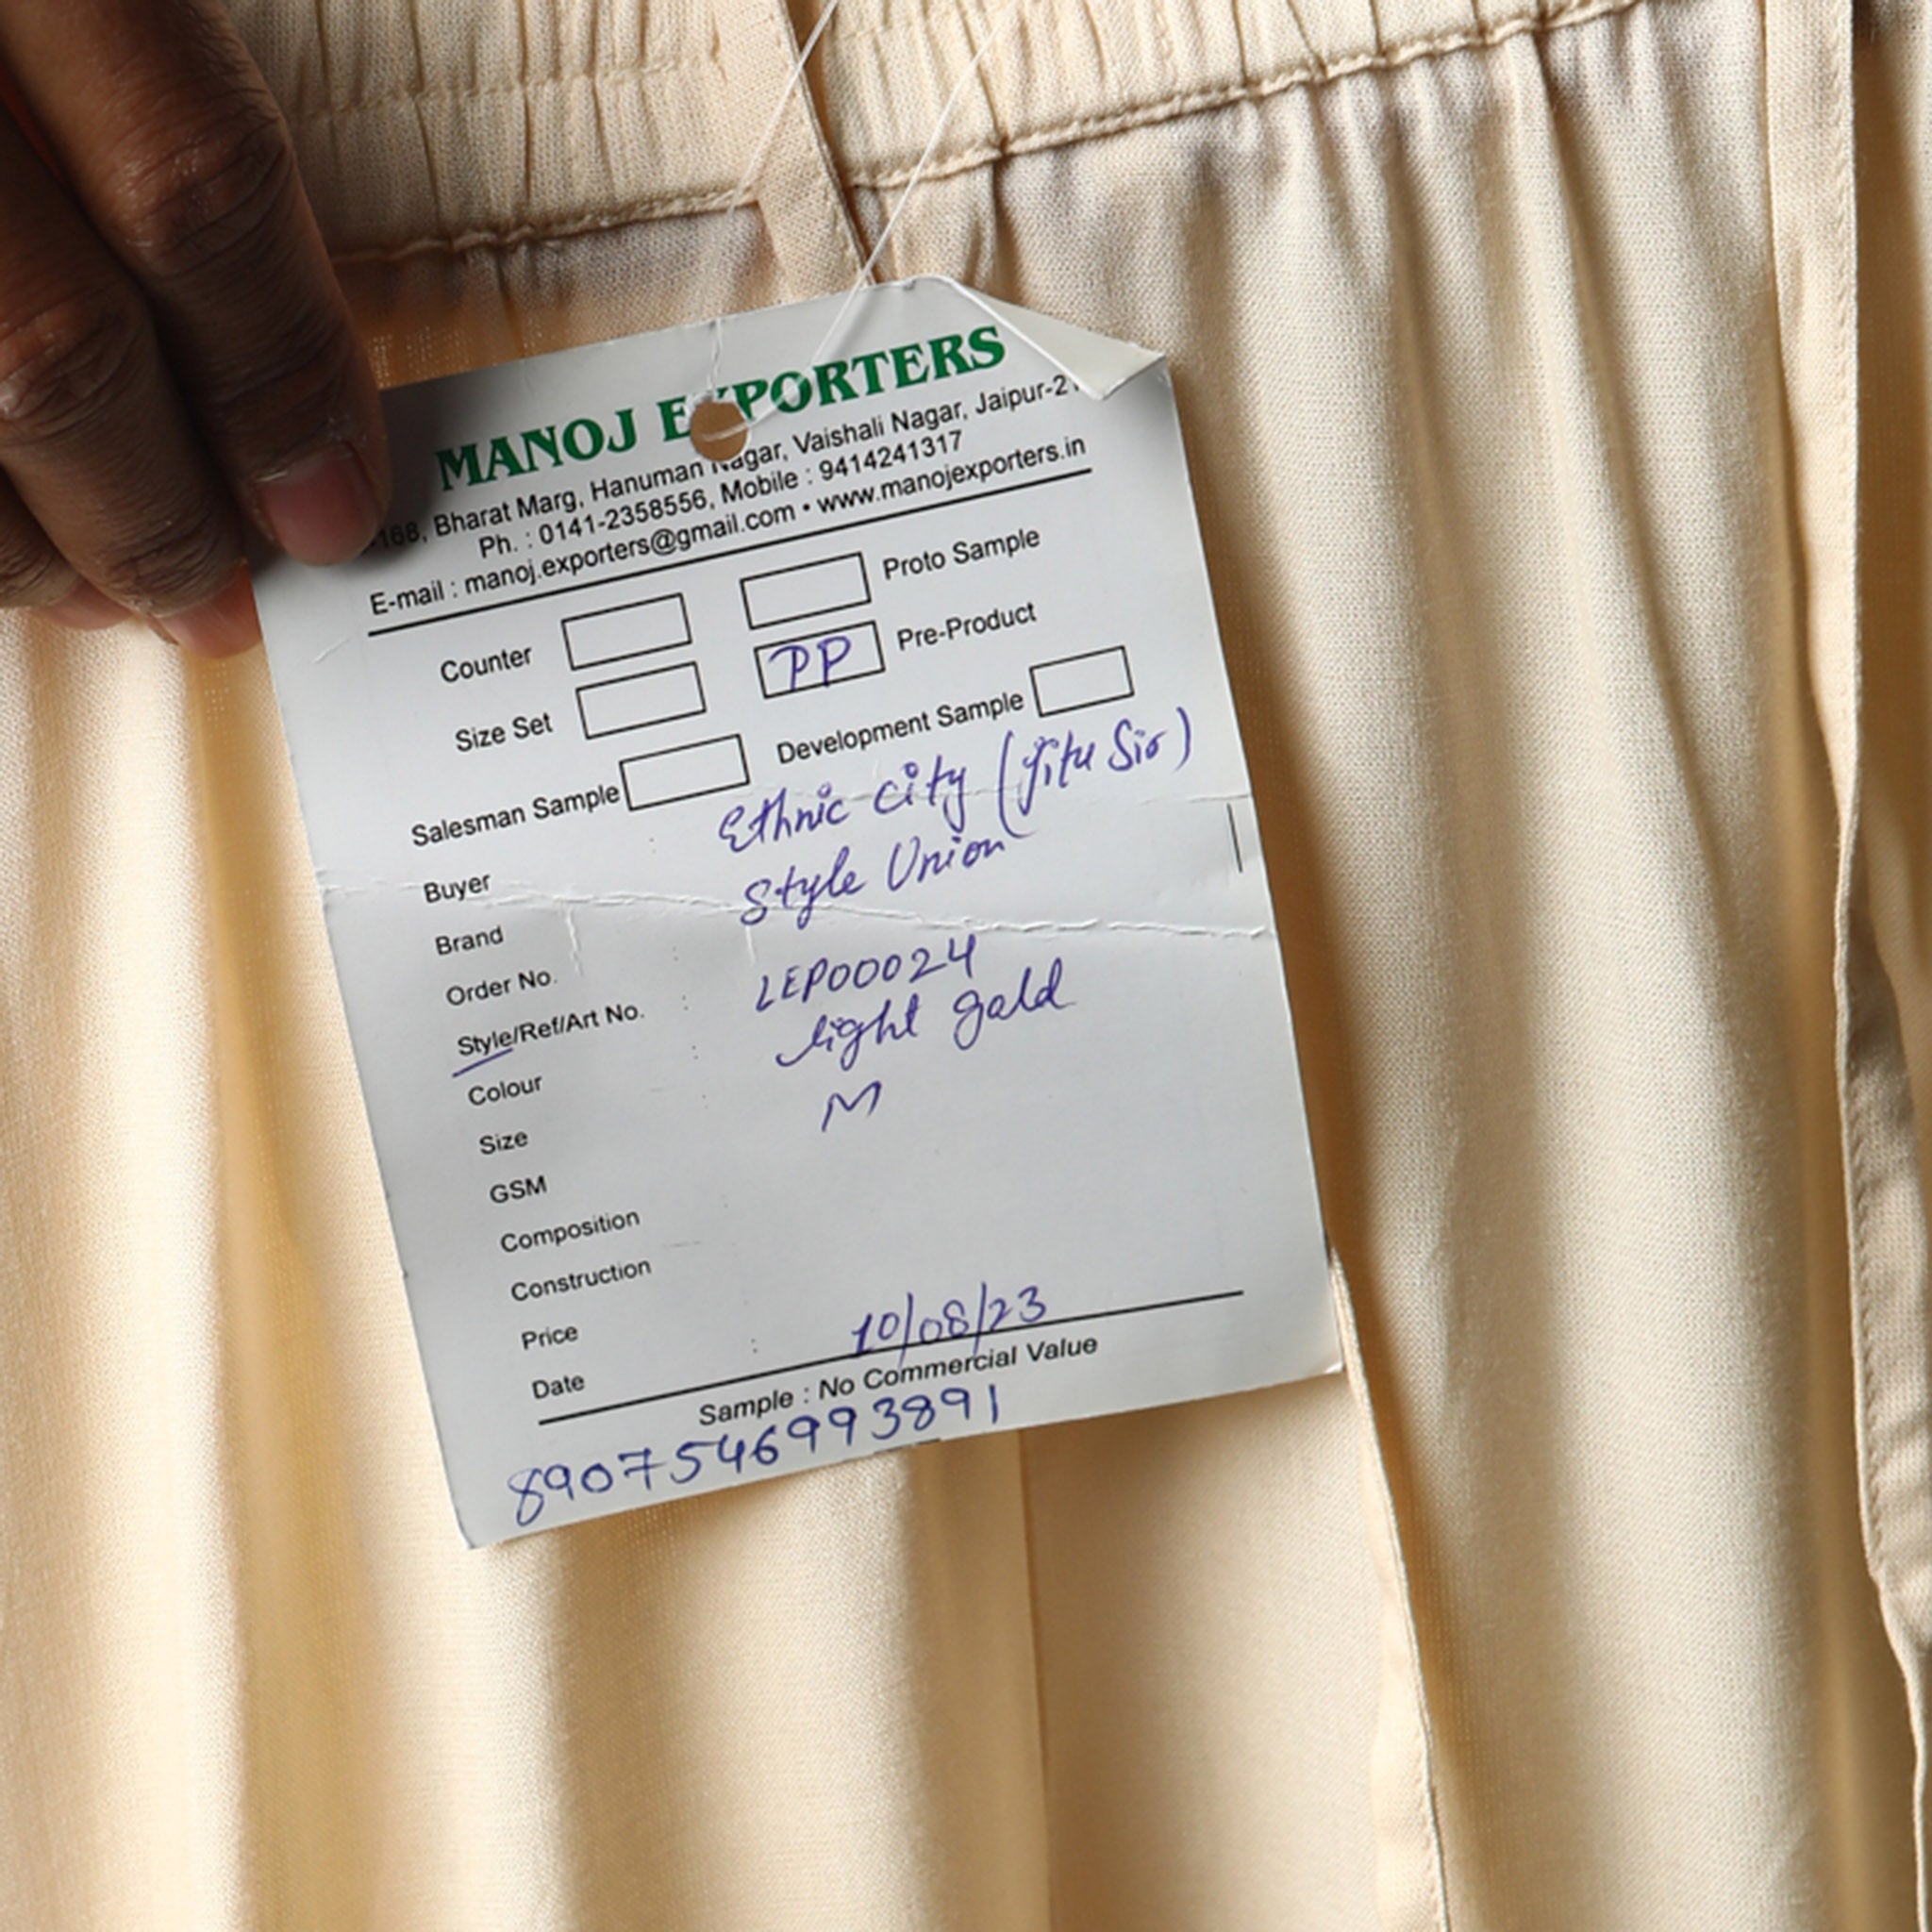 MANOJ EXPORTERS
168, Bharat Marg, Hanuman Nagar, Vaishali Nagar, Jaipur-21
Ph. : 0141-2358556, Mobile : 9414241317
E-mail : manoj.exporters@gmail.com • www.manojexporters.in
Counter Proto Sample
Size Set PP Pre-Product
Salesman Sample Development Sample
Buyer : Ethnic city (Jitu Sir)
Brand Style Union
Order No.
Style/Ref/Art No. : LEP00024
Colour : light gold
Size : M
GSM
Composition
Construction
Price
Date : 10/08/23
Sample : No Commercial Value
8907546993891